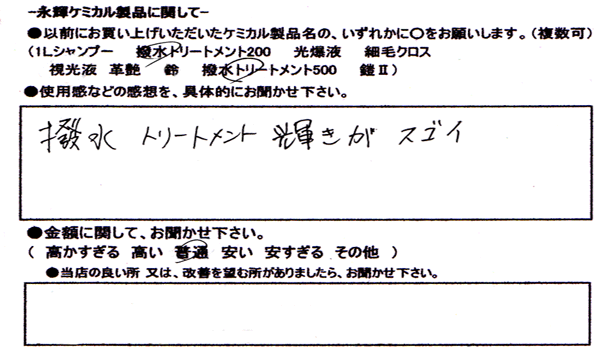 -永輝ケミカル製品に関して-
●以前にお買い上げいただいたケミカル製品名の、いずれかに〇をお願いします。(複数可)
(1Lシャンプー 撥水トリートメント200 光爆液 細毛クロス
視光液 革艶 鈴 撥水トリートメント500 鎧Ⅱ)
●使用感などの感想を、具体的にお聞かせ下さい。
撥水 トリートメント 輝きが スゴイ
●金額に関して、お聞かせ下さい。
( 高かすぎる 高い 普通 安い 安すぎる その他 )
●当店の良い所 又は、改善を望む所がありましたら、お聞かせ下さい。